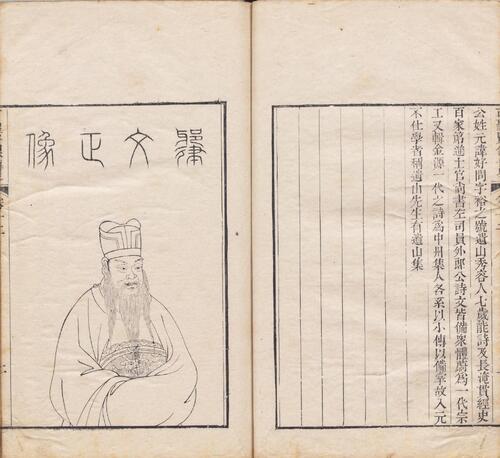 公姓元諱好問字裕之號遺山秀容人七歲能詩及長淹貫經史
百家第進士官尚書左司員外郎公詩文皆備衆體蔚爲一代宗
工又輯金源一代之詩爲中州集人各系以小傳以備掌故入元
不仕學者稱遺山先生有遺山集
文正像